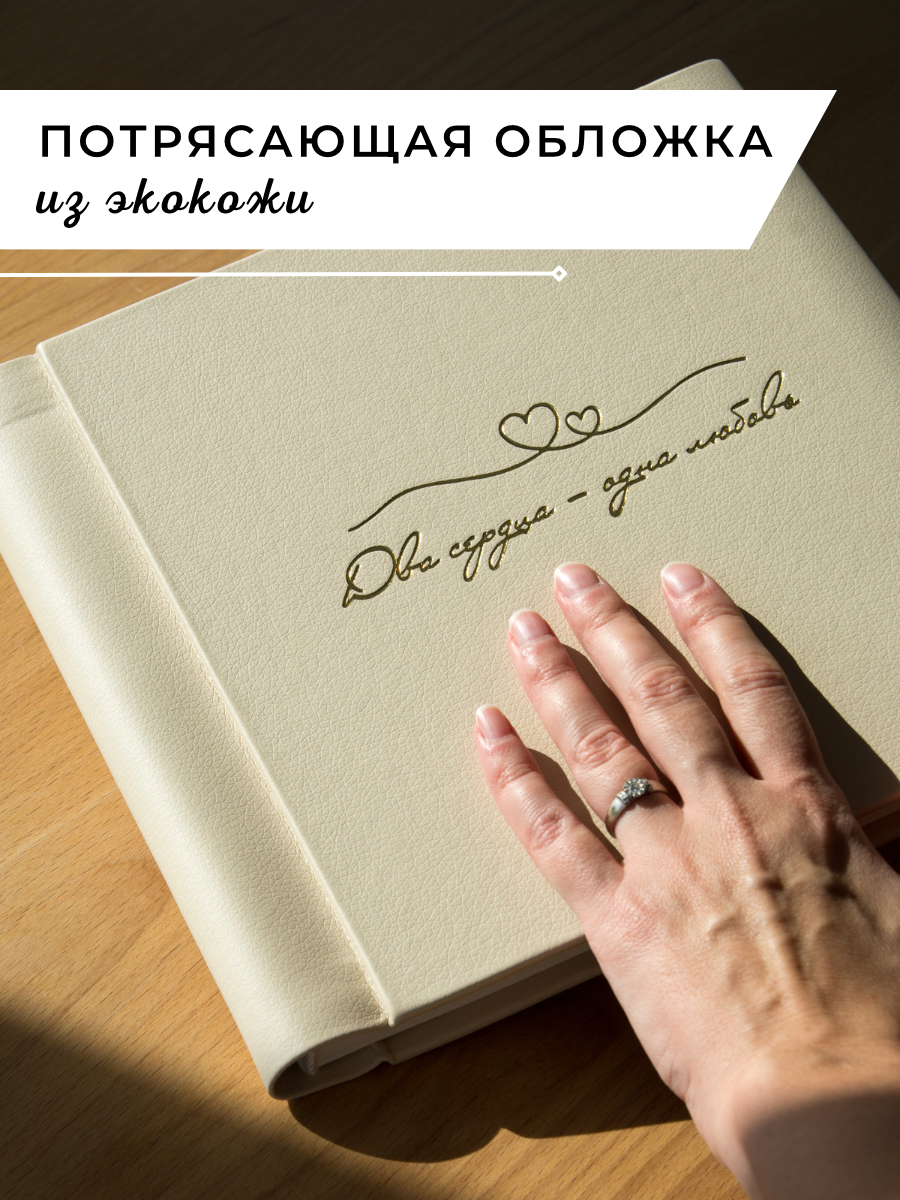 ПОТРЯСАЮЩАЯ ОБЛОЖКА
из экокожи
Два сердца – одна любовь